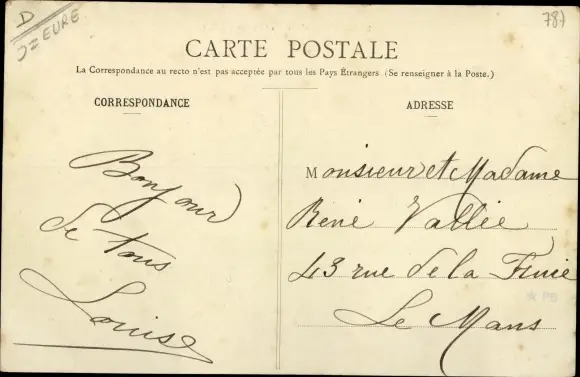 D
J= EURE
787
CARTE POSTALE
La Correspondance au recto n'est pas acceptée par tous les Pays Étrangers (Se renseigner à la Poste.)
CORRESPONDANCE
Bonjour
de tous
Louise
ADRESSE
Monsieur et Madame
René Vallée
43 rue de la
Le Mans